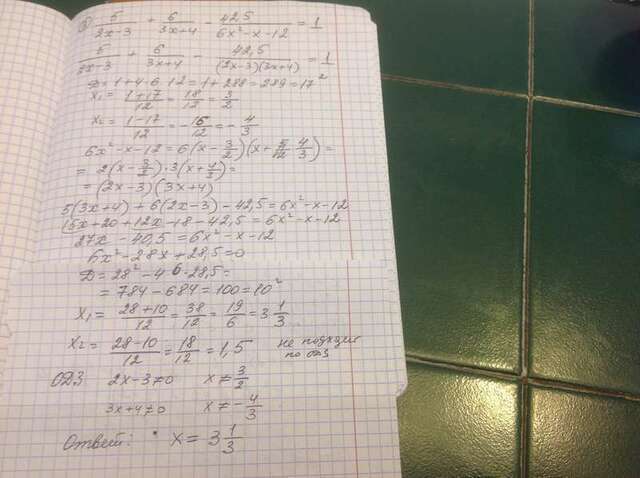 5/(2x-3) + 6/(3x+4) - 42,5/(6x²-x-12) = 1
5/(2x-3) + 6/(3x+4) - 42,5/((2x-3)(3x+4)) = 1
D = 1+4·6·12 = 1+288 = 289 = 17²
x₁ = (1+17)/12 = 18/12 = 3/2
x₂ = (1-17)/12 = -16/12 = -4/3
6x²-x-12 = 6(x-3/2)(x+4/3) =
= 2(x-3/2)·3(x+4/3) =
= (2x-3)(3x+4)
5(3x+4) + 6(2x-3) - 42,5 = 6x²-x-12
15x+20+12x-18-42,5 = 6x²-x-12
27x - 40,5 = 6x²-x-12
6x²-28x+28,5 = 0
D = 28²-4·6·28,5 =
= 784-684 = 100 = 10²
x₁ = (28+10)/12 = 38/12 = 19/6 = 3 1/3
x₂ = (28-10)/12 = 18/12 = 1,5 не подходит по ОДЗ
ОДЗ 2x-3≠0 x≠3/2
3x+4≠0 x≠-4/3
Ответ: x = 3 1/3